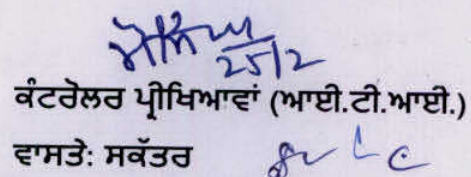 25/2
ਕੰਟਰੋਲਰ ਪ੍ਰੀਖਿਆਵਾਂ (ਆਈ.ਟੀ.ਆਈ.)
ਵਾਸਤੇ: ਸਕੱਤਰ